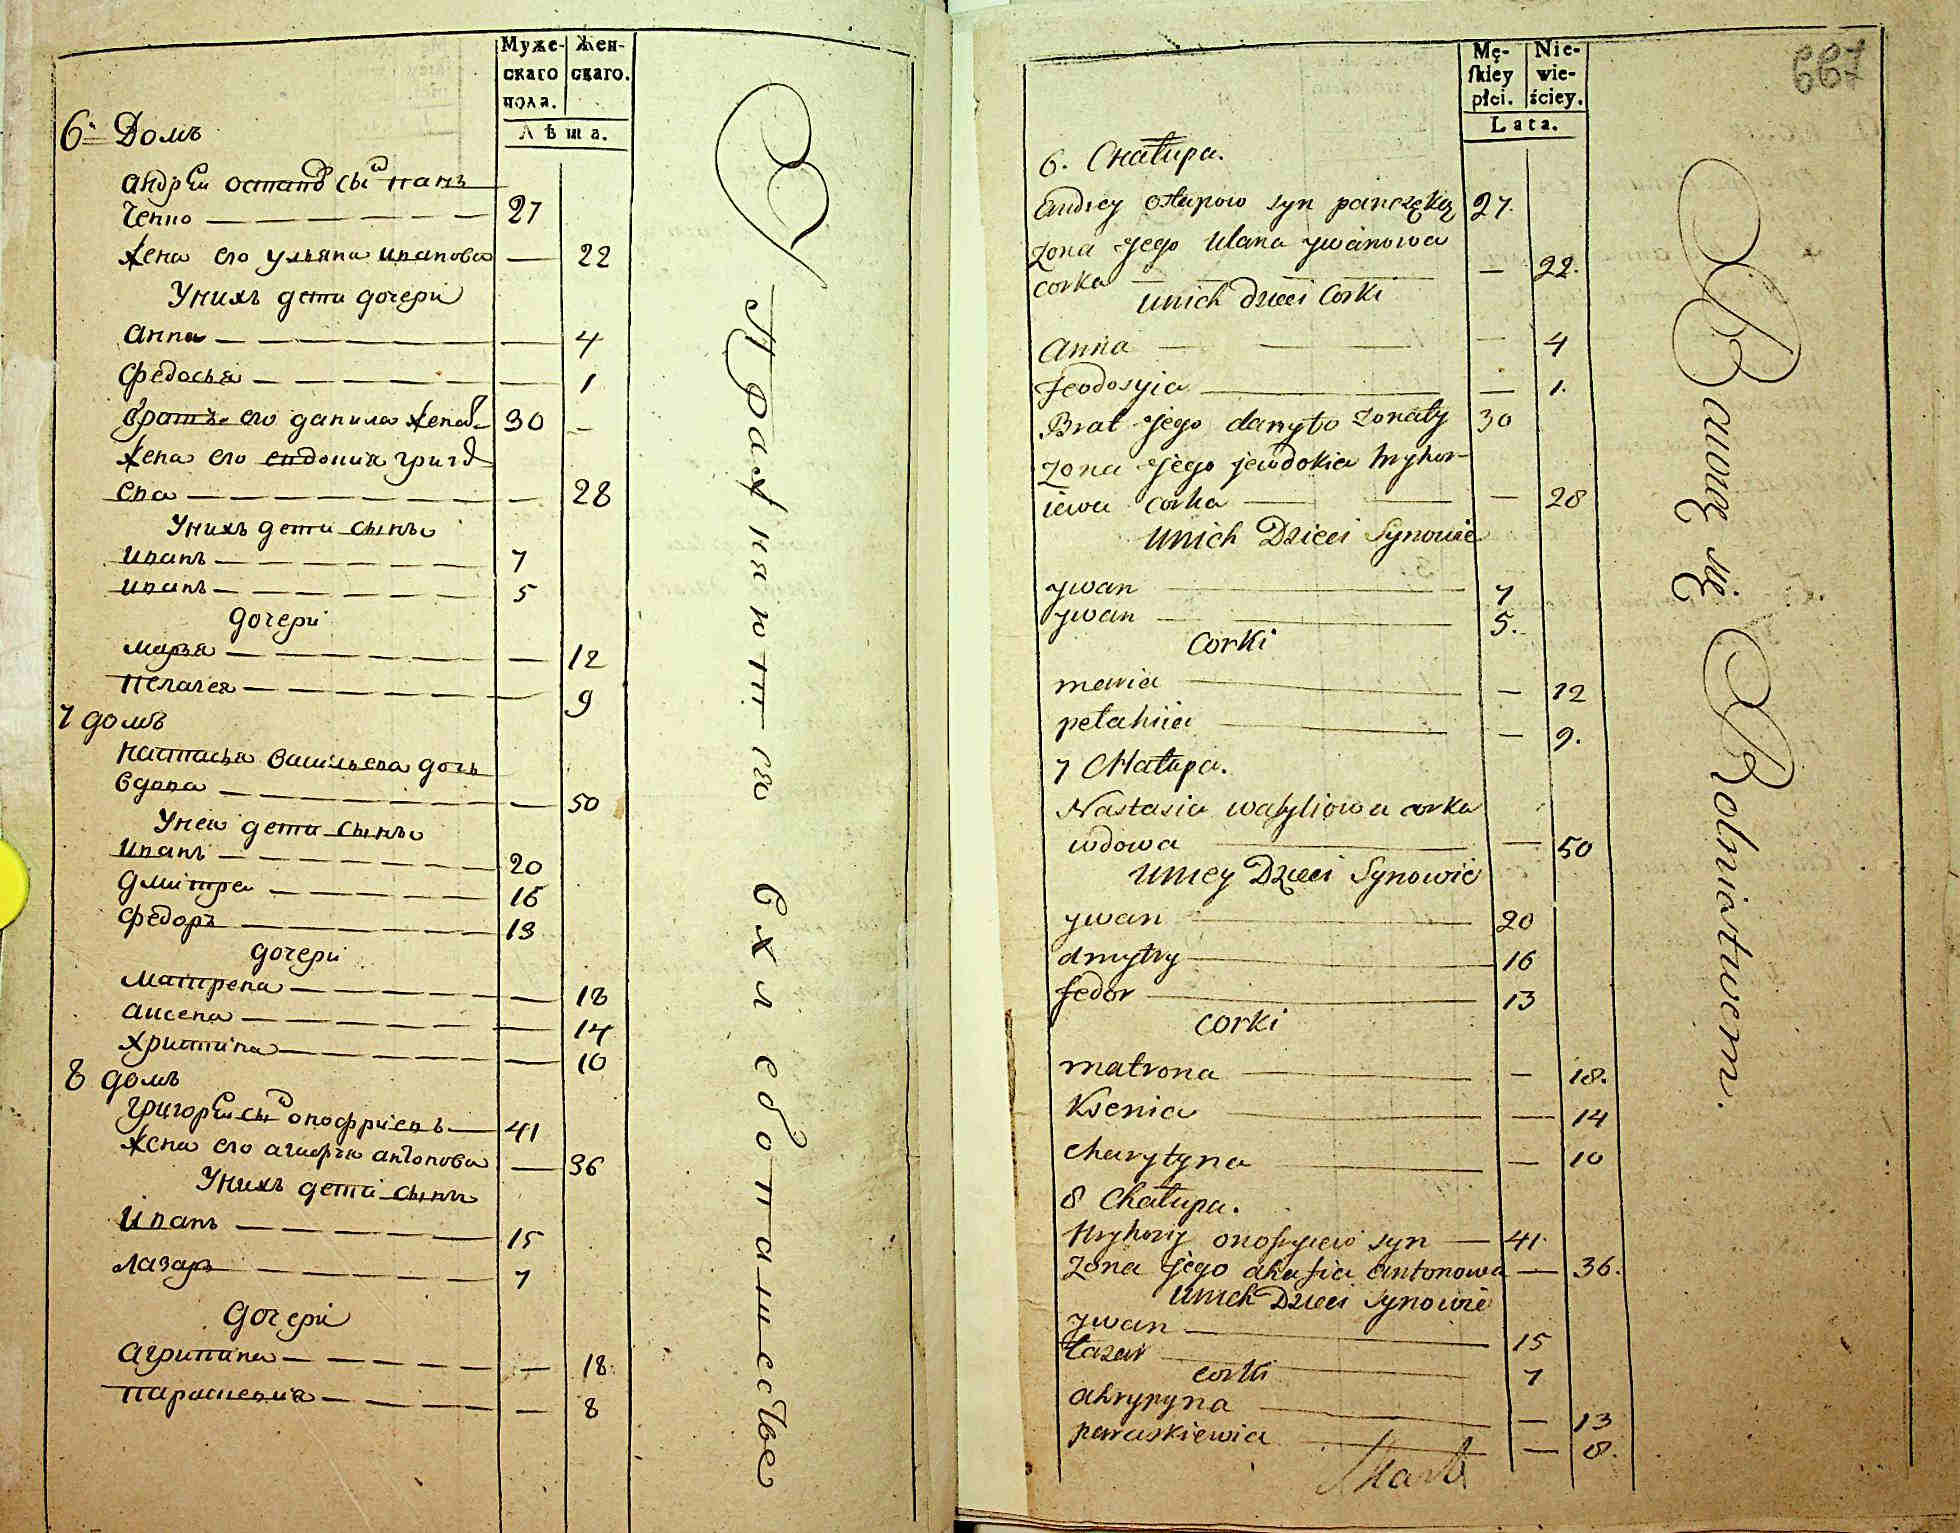 Муже-
скаго
пола.
Жен-
скаго.
Лѣта.
6й Домъ
Андрей остаповъ сынъ панъ
ченко — 27
Жена его ульяна иванова — 22
Унихъ дети дочери
анна — 4
федосья — 1
братъ его данила женат — 30 —
Жена его евдокия григо
ева — 28
Унихъ дети сынъи
иванъ — 7
иванъ — 5
дочери
марья — 12
пелагея — 9
7 домъ
настасья васильева дочь
вдова — 50
Унеи дети сынъи
иванъ — 20
дмитра — 16
федоръ — 13
дочери
матрена — 18
аксена — 14
христина — 10
8 домъ
григорей сынъ онофриевъ — 41
жена его агафья антонова — 36
Унихъ дети сынъи
иванъ — 15
лазаръ — 7
дочери
агрипина — 18
парасковия — 8
Упражняются вхлебопашестве
667
Mę-
skiey
płci.
Nie-
wie-
ściey.
Lata.
6. Chałupa.
Andrey Ostapow syn panczęko 27.
Zona jego Ulana ywanowa
corka — 22.
unich dzieci Corki
Anna — 4
feodosyia — 1.
Brat jego danyło zonaty 30
Zona jego jewdokia hryhor-
iewa corka — 28
unich Dzieci Synowie
ywan — 7
ywan — 5.
Corki
maria — 12
pełahiia — 9.
7 Chałupa.
Nastasia wasyliowa corka
wdowa — 50
uniey Dzieci Synowie
ywan — 20
dmytry — 16
fedor — 13
corki
matrona — 18.
Ksenia — 14
charytyna — 10
8 Chałupa.
Hryhory onofryiew syn — 41.
Zona jego ahafia antonowa — 36.
unich Dzieci Synowie
ywan — 15
łazar — 7
corki
ahrypyna — 13
paraskiewia — 8.
Bawią się Rolnictwem.